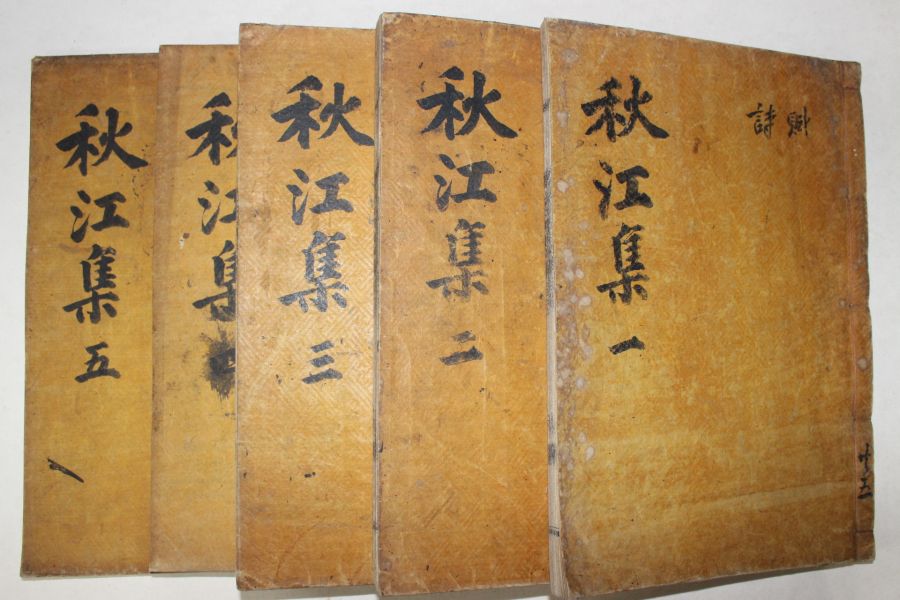 共五
賦
詩
秋江集 一
秋江集 二
秋江集 三
秋江集
秋江集 五